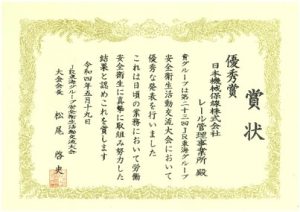 賞状
優秀賞
日本機械保線株式会社
レール管理事業所 殿
貴グループは第二十三回JR東海グループ
安全衛生活動交流大会において
優秀な発表を行いました
これは日頃の業務において労働
安全衛生に真摯に取組み努力した
結果と認めこれを賞します
令和四年五月十九日
JR東海グループ安全衛生活動交流大会
大会会長 松尾 啓史